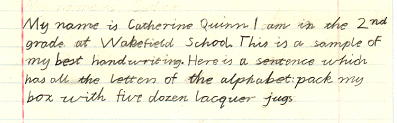 My name is Catherine Quinn I am in the 2nd
grade at Wakefield School. This is a sample of
my best handwriting. Here is a sentence which
has all the letters of the alphabet: pack my
box with five dozen lacquer jugs